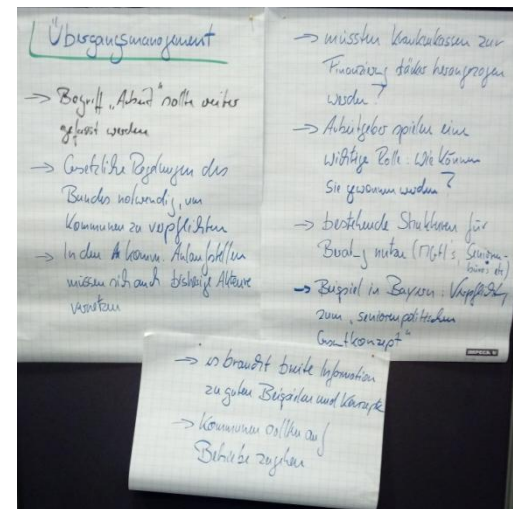 Übergangsmanagement
→ Begriff „Arbeit" sollte weiter
gefasst werden
→ Gesetzliche Regelungen des
Bundes notwendig, um
Kommunen zu verpflichten
→ In den komm. Anlaufstellen
müssen sich auch bisherige Akteure
vernetzen
→ müssten Krankenkassen zur
Finanzierung stärker herangezogen
werden?
→ Arbeitgeber spielen eine
wichtige Rolle: wie können
sie gewonnen werden?
→ bestehende Strukturen für
Beratung nutzen (MGH's, Senioren-
büros etc)
→ Beispiel in Bayern: Verpflichtung
zum „seniorenpolitischen
Gesamtkonzept"
→ es braucht breite Information
zu guten Beispielen und Konzepte
→ Kommunen sollten auf
Betriebe zugehen